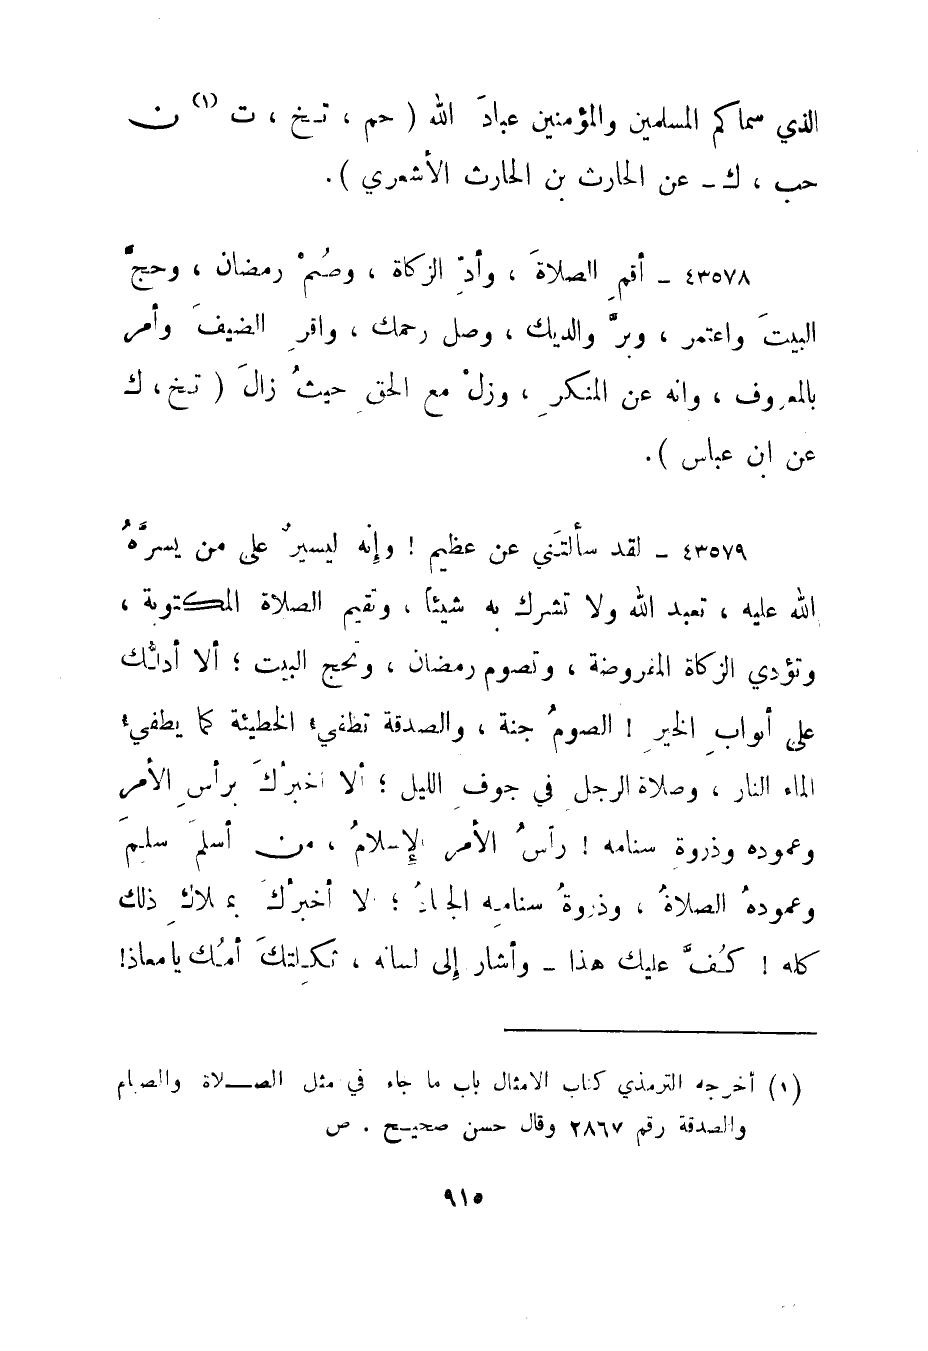 الذي سماكم المسلمين والمؤمنين عبادَ الله ( حم ، تخ ، ت (١) ن
حب ، ك ـ عن الحارث بن الحارث الأشعري ).
٤٣٥٧٨ ـ أقمِ الصلاةَ ، وأدِّ الزكاة ، وصُمْ رمضان ، وحجَّ
البيتَ واعتمر ، وبرَّ والديك ، وصل رحمك ، واقرِ الضيفَ وأمر
بالمعروف ، وانه عن المنكرِ ، وزلْ مع الحقِ حيثُ زالَ ( تخ، ك
عن ابن عباس ).
٤٣٥٧٩ ـ لقد سألتَني عن عظيم ! وإنه ليسيرٌ على من يسرَّهُ
الله عليه ، تعبد الله ولا تشرك به شيئاً ، وتقيم الصلاة المكتوبة ،
وتؤدي الزكاة المفروضة ، وتصوم رمضان ، وتحج البيت ؛ ألا أدلُّك
على أبوابِ الخيرِ ! الصومُ جنة ، والصدقة تطفيء الخطيئة كما يطفيء
الماء النار ، وصلاة الرجلِ في جوفِ الليل ؛ ألا أخبرُكَ برأسِ الأمرِ
وعموده وذروةِ سنامه ! رأسُ الأمرِ الإسلامُ ، من أسلمَ سلِمَ
وعمودهُ الصلاةُ ، وذروةُ سنامِه الجهادُ ؛ ألا أخبرُكَ بملاكِ ذلك
كله ! كُفَّ عليك هذا ـ وأشار إلى لسانه ، ثكلتكَ أمُك يا معاذ!
(١) أخرجه الترمذي كتاب الامثال باب ما جاء في مثل الصلاة والصيام
والصدقة رقم ٢٨٦٧ وقال حسن صحيح . ص
٩١٥